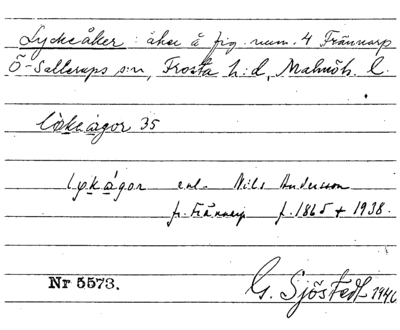 Lyckeåker: åker å fig. num. 4 Frännarp
Ö-Sallerups s:n, Frosta h:d, Malmöh. l.
lykeågor 35
lykågor enl. Nils Andersson
fr. Frännarp f. 1865 + 1938.
Nr 5573.
G. Sjöstedt 1946